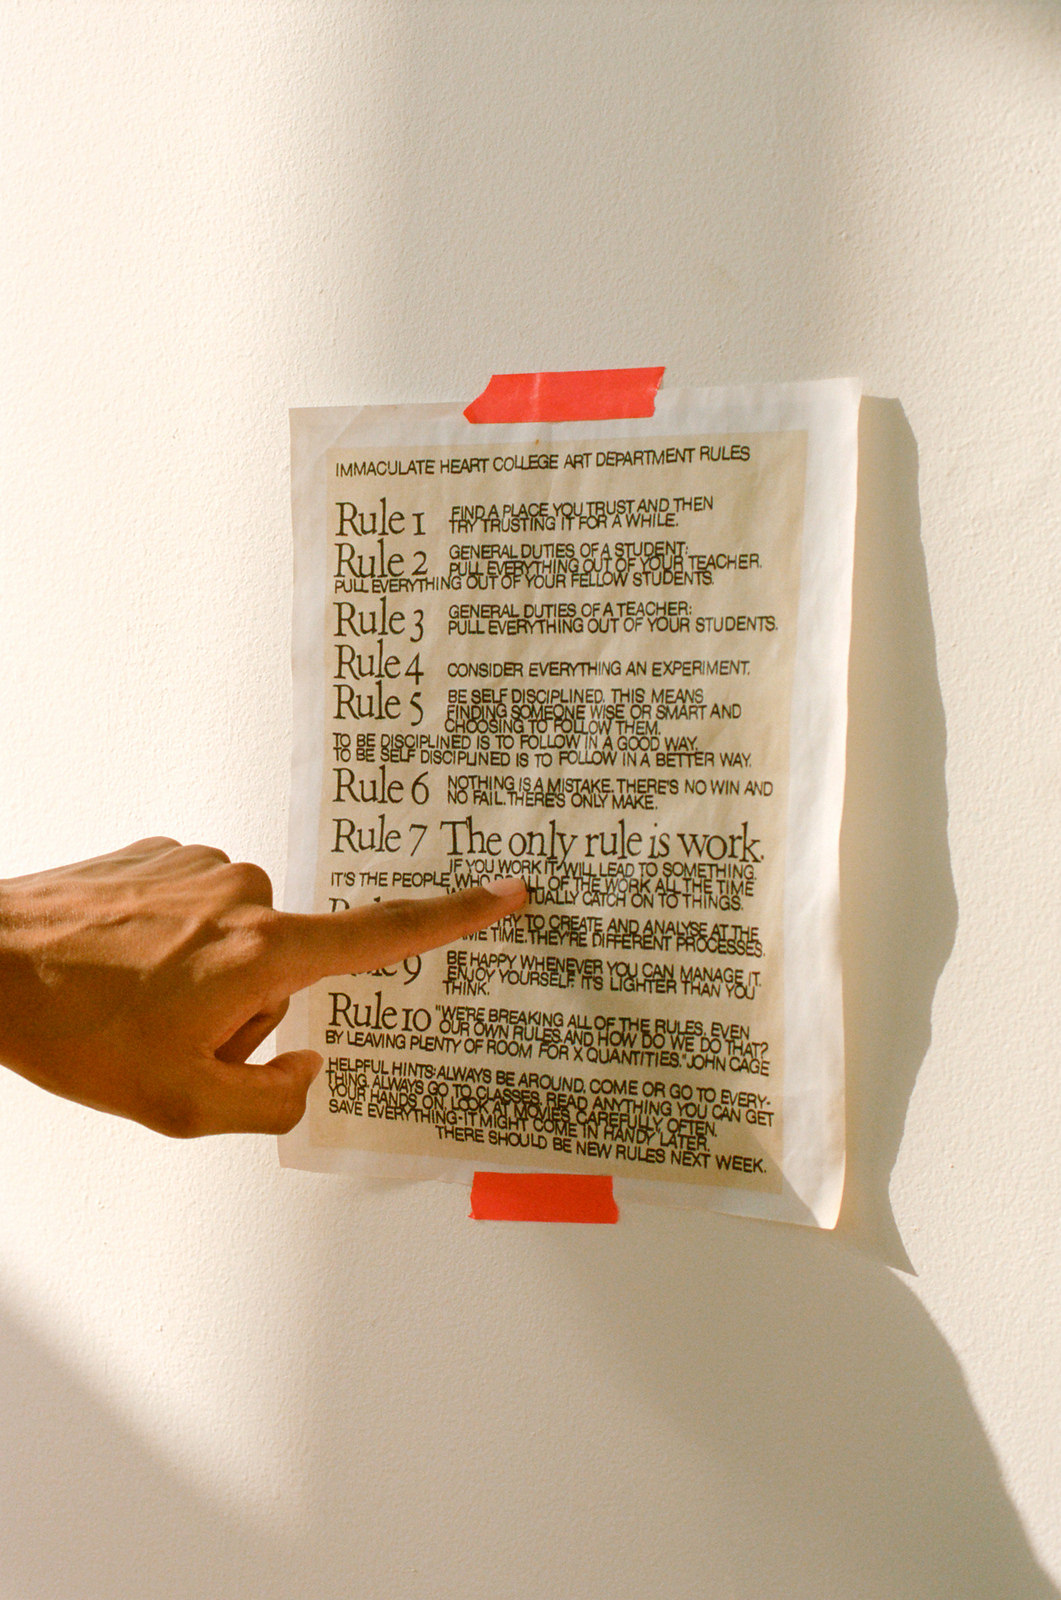 IMMACULATE HEART COLLEGE ART DEPARTMENT RULES
Rule 1 FIND A PLACE YOU TRUST AND THEN
TRY TRUSTING IT FOR A WHILE.
Rule 2 GENERAL DUTIES OF A STUDENT:
PULL EVERYTHING OUT OF YOUR TEACHER.
PULL EVERYTHING OUT OF YOUR FELLOW STUDENTS.
Rule 3 GENERAL DUTIES OF A TEACHER:
PULL EVERYTHING OUT OF YOUR STUDENTS.
Rule 4 CONSIDER EVERYTHING AN EXPERIMENT.
Rule 5 BE SELF DISCIPLINED. THIS MEANS
FINDING SOMEONE WISE OR SMART AND
CHOOSING TO FOLLOW THEM.
TO BE DISCIPLINED IS TO FOLLOW IN A GOOD WAY.
TO BE SELF DISCIPLINED IS TO FOLLOW IN A BETTER WAY.
Rule 6 NOTHING IS A MISTAKE. THERE'S NO WIN AND
NO FAIL. THERE'S ONLY MAKE.
Rule 7 The only rule is work.
IF YOU WORK IT WILL LEAD TO SOMETHING.
IT'S THE PEOPLE WHO ALL OF THE WORK ALL THE TIME
CATCH ON TO THINGS.
TRY TO CREATE AND ANALYSE AT THE
TIME. THEY'RE DIFFERENT PROCESSES.
9 BE HAPPY WHENEVER YOU CAN MANAGE IT.
ENJOY YOURSELF. IT'S LIGHTER THAN YOU
THINK.
Rule 10 "WE'RE BREAKING ALL OF THE RULES. EVEN
OUR OWN RULES AND HOW DO WE DO THAT?
BY LEAVING PLENTY OF ROOM FOR X QUANTITIES." JOHN CAGE
HELPFUL HINTS: ALWAYS BE AROUND. COME OR GO TO EVERY-
THING. ALWAYS GO TO CLASSES. READ ANYTHING YOU CAN GET
YOUR HANDS ON. LOOK AT MOVIES CAREFULLY, OFTEN.
SAVE EVERYTHING-IT MIGHT COME IN HANDY LATER.
THERE SHOULD BE NEW RULES NEXT WEEK.